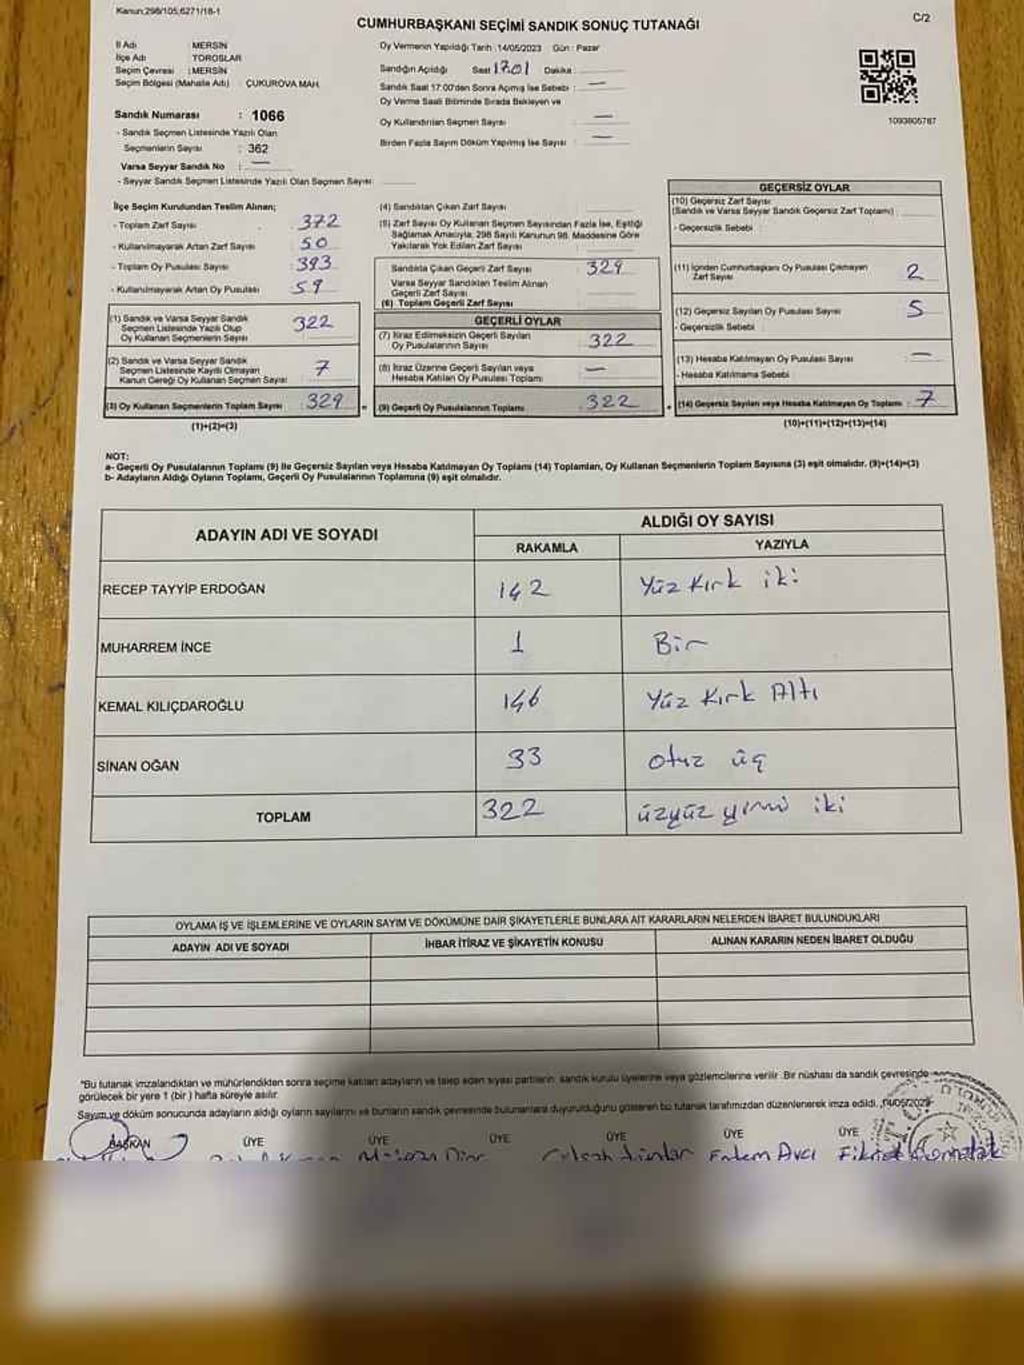 Kanun:298/105;6271/18-1
CUMHURBAŞKANI SEÇİMİ SANDIK SONUÇ TUTANAĞI
C/2
İl Adı : MERSİN
İlçe Adı : TOROSLAR
Seçim Çevresi : MERSİN
Seçim Bölgesi (Mahalle Adı) : ÇUKUROVA MAH.
Sandık Numarası : 1066
- Sandık Seçmen Listesinde Yazılı Olan
Seçmenlerin Sayısı : 362
Varsa Seyyar Sandık No : —
- Seyyar Sandık Seçmen Listesinde Yazılı Olan Seçmen Sayısı:
Oy Vermenin Yapıldığı Tarih :14/05/2023 Gün : Pazar
Sandığın Açıldığı Saat 17.01 Dakika :
Sandık Saat 17:00'den Sonra Açılmış İse Sebebi : —
Oy Verme Saati Bitiminde Sırada Bekleyen ve
Oy Kullandırılan Seçmen Sayısı : —
Birden Fazla Sayım Döküm Yapılmış İse Sayısı : —
1093805787
İlçe Seçim Kurulundan Teslim Alınan;
- Toplam Zarf Sayısı : 372
- Kullanılmayarak Artan Zarf Sayısı : 50
- Toplam Oy Pusulası Sayısı : 393
- Kullanılmayarak Artan Oy Pusulası : 59
(1) Sandık ve Varsa Seyyar Sandık
Seçmen Listesinde Yazılı Olup
Oy Kullanan Seçmenlerin Sayısı : 322
(2) Sandık ve Varsa Seyyar Sandık
Seçmen Listesinde Kayıtlı Olmayan
Kanun Gereği Oy Kullanan Seçmen Sayısı : 7
(3) Oy Kullanan Seçmenlerin Toplam Sayısı : 329
(1)+(2)=(3)
(4) Sandıktan Çıkan Zarf Sayısı :
(5) Zarf Sayısı Oy Kullanan Seçmen Sayısından Fazla İse, Eşitliği
Sağlamak Amacıyla; 298 Sayılı Kanunun 98. Maddesine Göre
Yakılarak Yok Edilen Zarf Sayısı :
Sandıkta Çıkan Geçerli Zarf Sayısı : 329
Varsa Seyyar Sandıktan Teslim Alınan
Geçerli Zarf Sayısı :
(6) Toplam Geçerli Zarf Sayısı :
GEÇERLİ OYLAR
(7) İtiraz Edilmeksizin Geçerli Sayılan
Oy Pusulalarının Sayısı : 322
(8) İtiraz Üzerine Geçerli Sayılan veya
Hesaba Katılan Oy Pusulası Toplamı : —
(9) Geçerli Oy Pusulalarının Toplamı : 322
GEÇERSİZ OYLAR
(10) Geçersiz Zarf Sayısı
(Sandık ve Varsa Seyyar Sandık Geçersiz Zarf Toplamı) :
- Geçersizlik Sebebi :
(11) İçinden Cumhurbaşkanı Oy Pusulası Çıkmayan
Zarf Sayısı : 2
(12) Geçersiz Sayılan Oy Pusulası Sayısı : 5
- Geçersizlik Sebebi :
(13) Hesaba Katılmayan Oy Pusulası Sayısı : —
- Hesaba Katılmama Sebebi :
(14) Geçersiz Sayılan veya Hesaba Katılmayan Oy Toplamı : 7
(10)+(11)+(12)+(13)=(14)
NOT:
a- Geçerli Oy Pusulalarının Toplamı (9) ile Geçersiz Sayılan veya Hesaba Katılmayan Oy Toplamı (14) Toplamları, Oy Kullanan Seçmenlerin Toplam Sayısına (3) eşit olmalıdır. (9)+(14)=(3)
b- Adayların Aldığı Oyların Toplamı, Geçerli Oy Pusulalarının Toplamına (9) eşit olmalıdır.
ADAYIN ADI VE SOYADI
ALDIĞI OY SAYISI
RAKAMLA YAZIYLA
RECEP TAYYİP ERDOĞAN 142 Yüz Kırk iki
MUHARREM İNCE 1 Bir
KEMAL KILIÇDAROĞLU 146 Yüz Kırk Altı
SİNAN OĞAN 33 otuz üç
TOPLAM 322 üzyüz yirmi iki
OYLAMA İŞ VE İŞLEMLERİNE VE OYLARIN SAYIM VE DÖKÜMÜNE DAİR ŞİKAYETLERLE BUNLARA AİT KARARLARIN NELERDEN İBARET BULUNDUKLARI
ADAYIN ADI VE SOYADI İHBAR İTİRAZ VE ŞİKAYETİN KONUSU ALINAN KARARIN NEDEN İBARET OLDUĞU
*Bu tutanak imzalandıktan ve mühürlendikten sonra seçime katılan adayların ve talep eden siyasi partilerin sandık kurulu üyelerine veya gözlemcilerine verilir. Bir nüshası da sandık çevresinde
görülecek bir yere 1 (bir ) hafta süreyle asılır.
Sayım ve döküm sonucunda adayların aldığı oyların sayılarını ve bunların sandık çevresinde bulunanlara duyurulduğunu gösteren bu tutanak tarafımızdan düzenlenerek imza edildi. 14/05/2023
BAŞKAN ÜYE ÜYE ÜYE ÜYE ÜYE ÜYE
Erdem Avcı Fikret